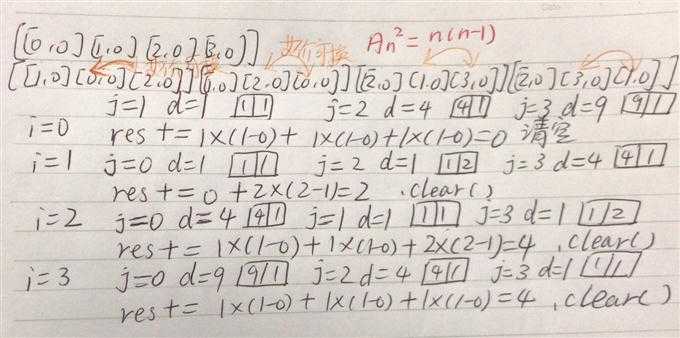 [[0,0][1,0][2,0][3,0]] Aₙ²=n(n-1)
[[1,0][0,0][2,0]][[1,0][2,0][0,0]][[2,0][1,0][3,0]][[2,0][3,0][1,0]]
j=1 d=1 1 1 j=2 d=4 4 1 j=3 d=9 9 1
i=0 res += 1×(1-0)+ 1×(1-0)+1×(1-0)=0 清空
i=1 j=0 d=1 1 1 j=2 d=1 1 2 j=3 d=4 4 1
res += 0 +2×(2-1)=2 .clear()
i=2 j=0 d=4 4 1 j=1 d=1 1 1 j=3 d=1 1 2
res += 1×(1-0)+1×(1-0)+2×(2-1)=4 .clear()
i=3 j=0 d=9 9 1 j=2 d=4 4 1 j=3 d=1 1 1
res += 1×(1-0)+1×(1-0)+1×(1-0)=4 .clear()